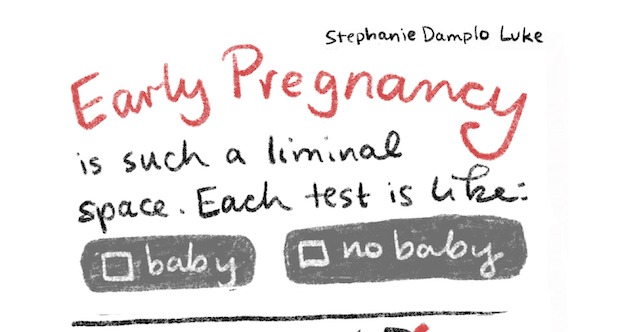 Stephanie Damplo Luke
Early Pregnancy
is such a liminal
space. Each test is like:
baby no baby